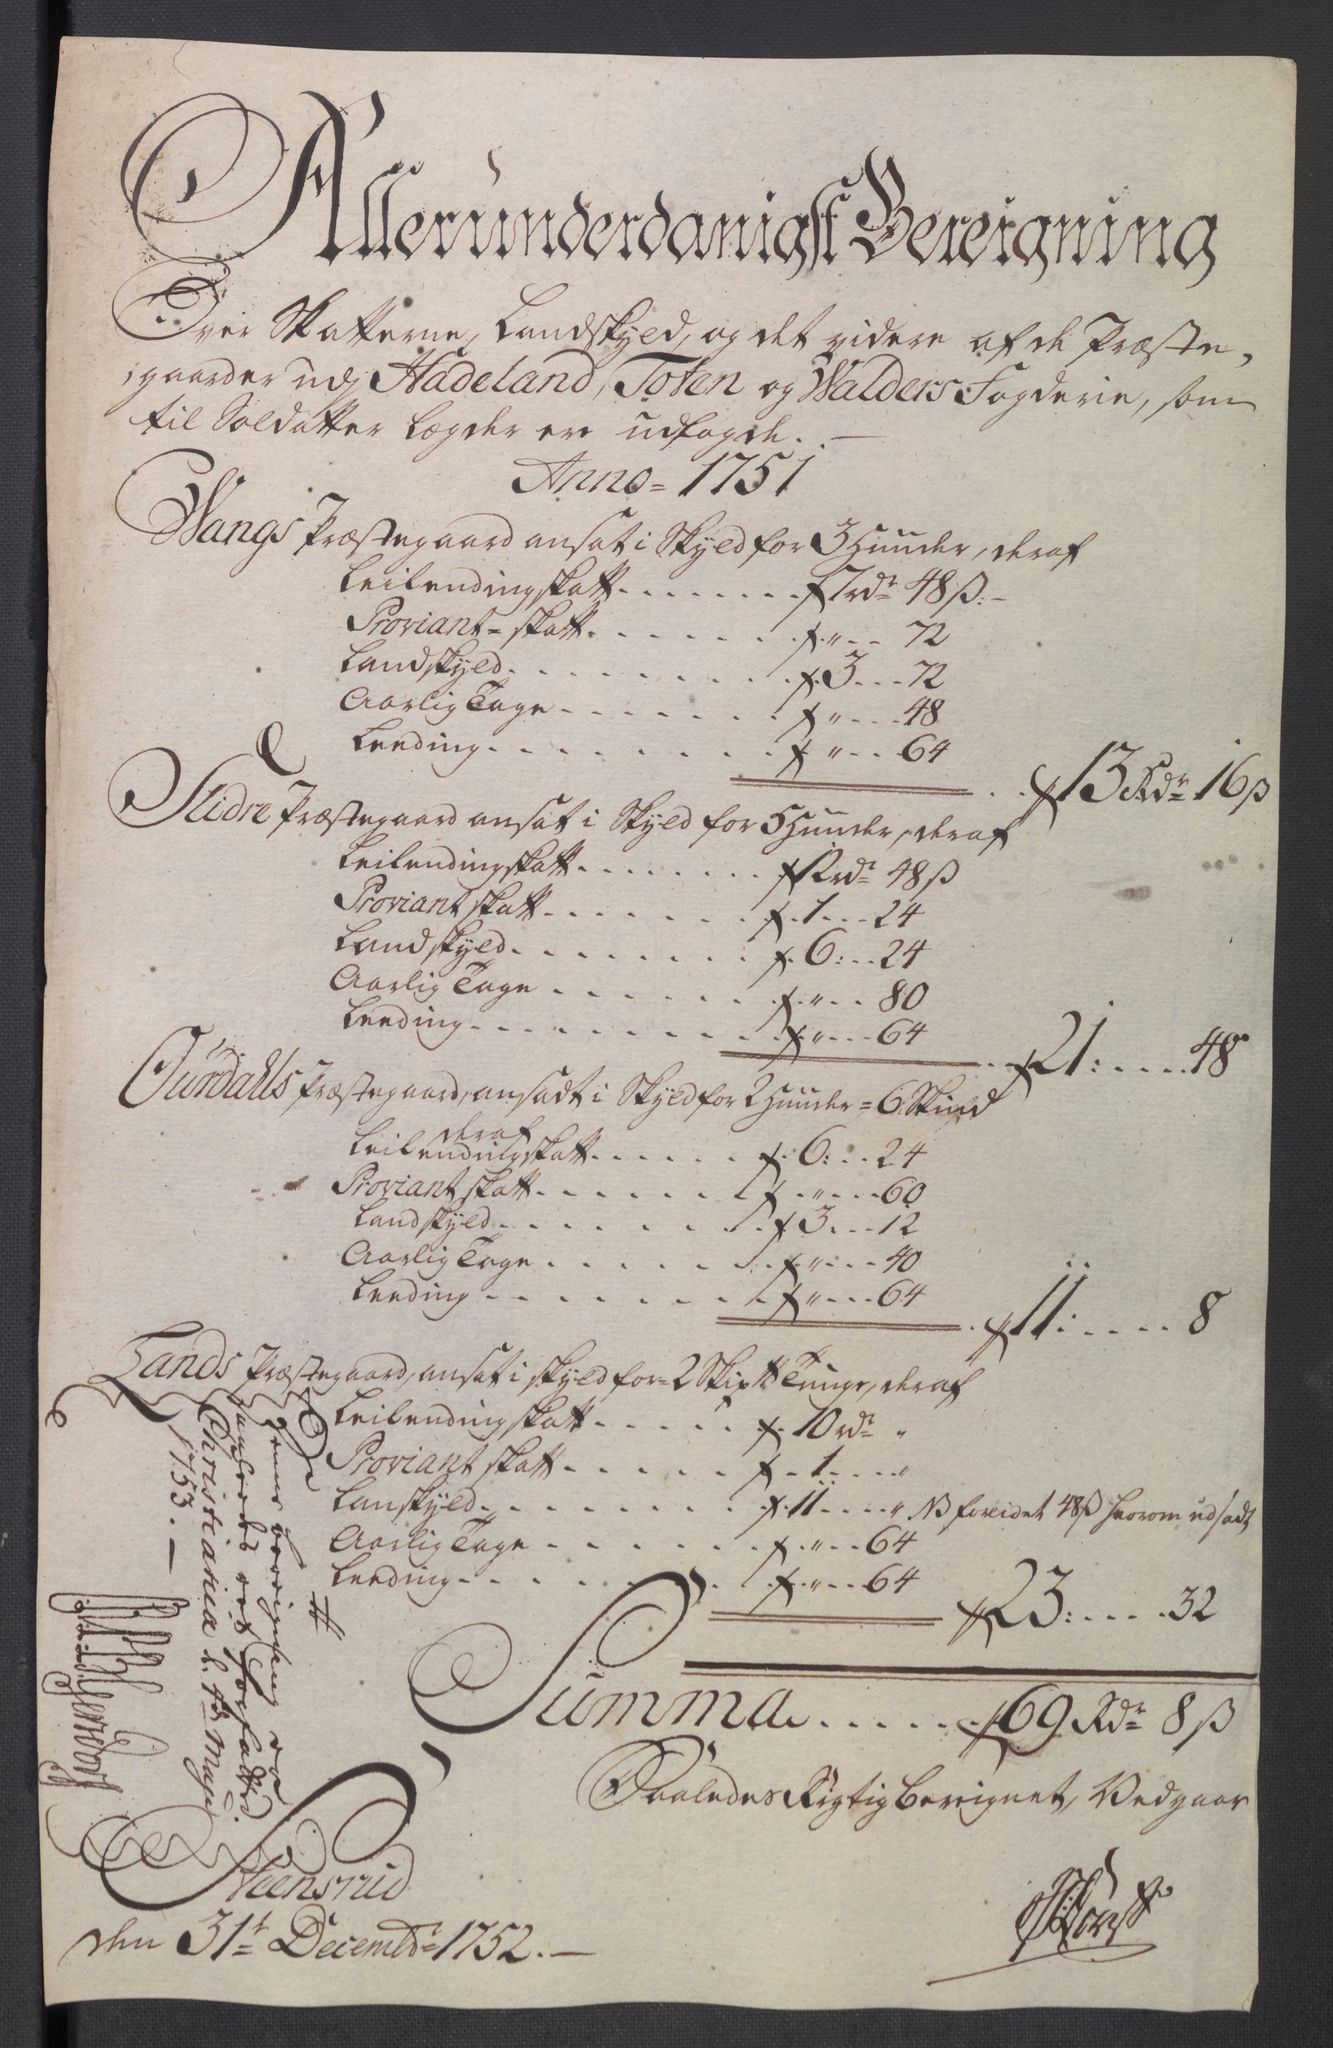 Allerunderdanigst Bereigning
Over Skatterne, Landskyld, og det videre af de Præste,
gaarder udj Hadeland, Toten og Walders Fogderie, som
til Soldatter Lægder ere udlagde.
Anno = 1751
Wangs Præstegaard ansat i Skyld for 3 Huuder, deraf
Leilendingskatt . . . . . . . . 7 rdr 48 ß: –
Proviant = skatt . . . . . . . „ - - 72
Landskyld . . . . . . . . . 3 . . . 72
Aarlig Tage . . . . . . . . „ . . . 48
Leeding . . . . . . . . . „ . . . 64
13 Rdr 16 ß
Slidre Præstegaard ansat i Skyld for 5 Huuder, deraf
Leilendingskatt . . . . . . . . 12 rdr 48 ß
Proviant skatt . . . . . . . . 1 . . . 24
Landskyld . . . . . . . . . 6 : . . 24
Aarlig Tage . . . . . . . . „ . . . 80
Leeding . . . . . . . . . „ . . . 64
21 : . . . . . 48
Ourdahls Præstegaard, ansadt i Skyld for 2 Huuder = 6 Skind
deraf
Leilendingskatt . . . . . . . 6 : . . . 24
Proviant skatt . . . . . . . „ . . . 60
Landskyld . . . . . . . . 3 . . . 12
Aarlig Tage . . . . . . . . „ . . . 40
Leeding . . . . . . . . . „ . . . 64
11 : . . . . . 8
Lands Præstegaard, ansat i skyld for = 2 Skip ℔ Tunge, deraf
Leilendingskatt . . . . . . 10 rdr „
Proviant skatt . . . . . . . 1 . . . . „
Lanskyld . . . . . . . . . 11 . . . . „ NB forvidet 48 ß hvorom udsadt
Aarlig Tage . . . . . . . . „ . . 64
Leeding . . . . . . . . . „ . . 64
23 : . . . . . 32
Summa . . . . . . 69 Rdr 8 ß
Saaledes Rigtig Bereignet, Vedgaar
Steensrud
den 31t Decembr 1752. –
denne bereigning
saaledes ved forfatted.
Christiania d. Maji
1753. –